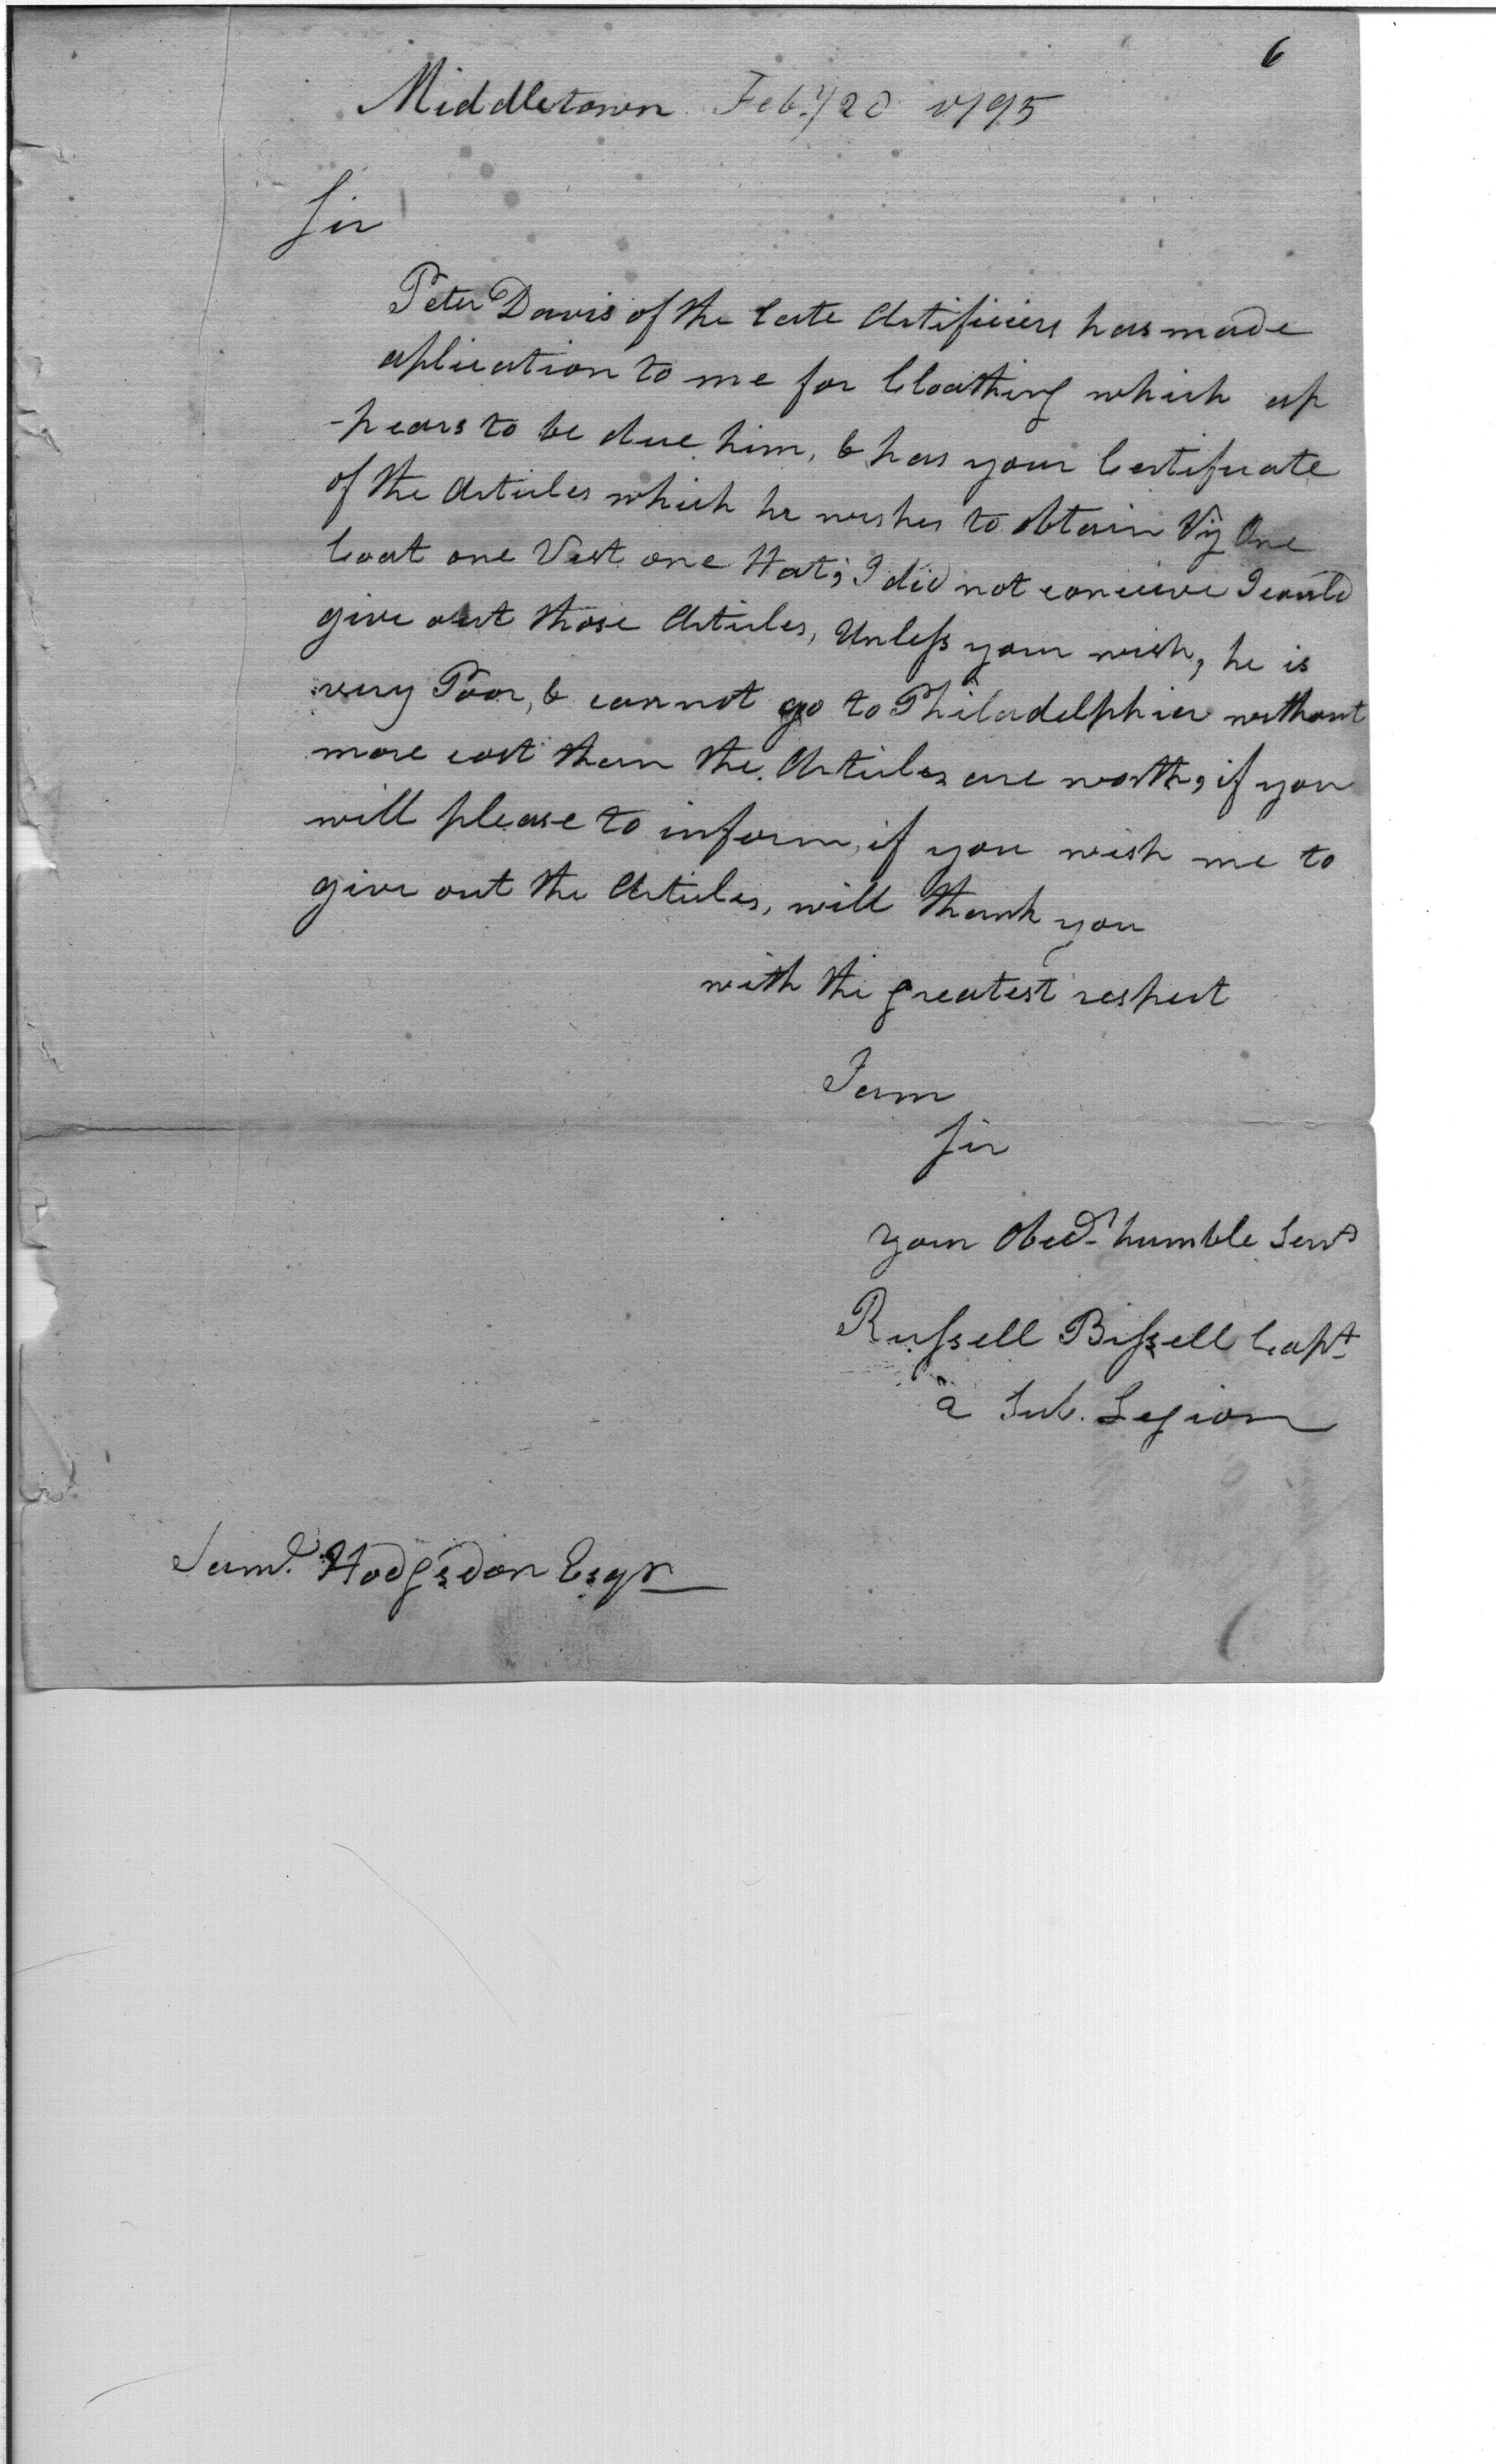 6
Middletown Feby 20 1795
Sir
Peter Davis of the late Artificers has made
aplication to me for Cloathing which ap
-pears to be due him, & has your Certificate
of the Articles which he wishes to obtain Viz One
Coat one Vest one Hat; I did not conceive I could
give out those Articles, Unless your wish, he is
very Poor, & cannot go to Philadelphia without
more cost than the Articles are worth, if you
will please to inform, if you wish me to
give out the Articles, will thank you
with the greatest respect
I am
Sir
your Obedt humble Servt
Russell Bissell Capt
2 Sub. Legion
Saml. Hodgsdon Esqr